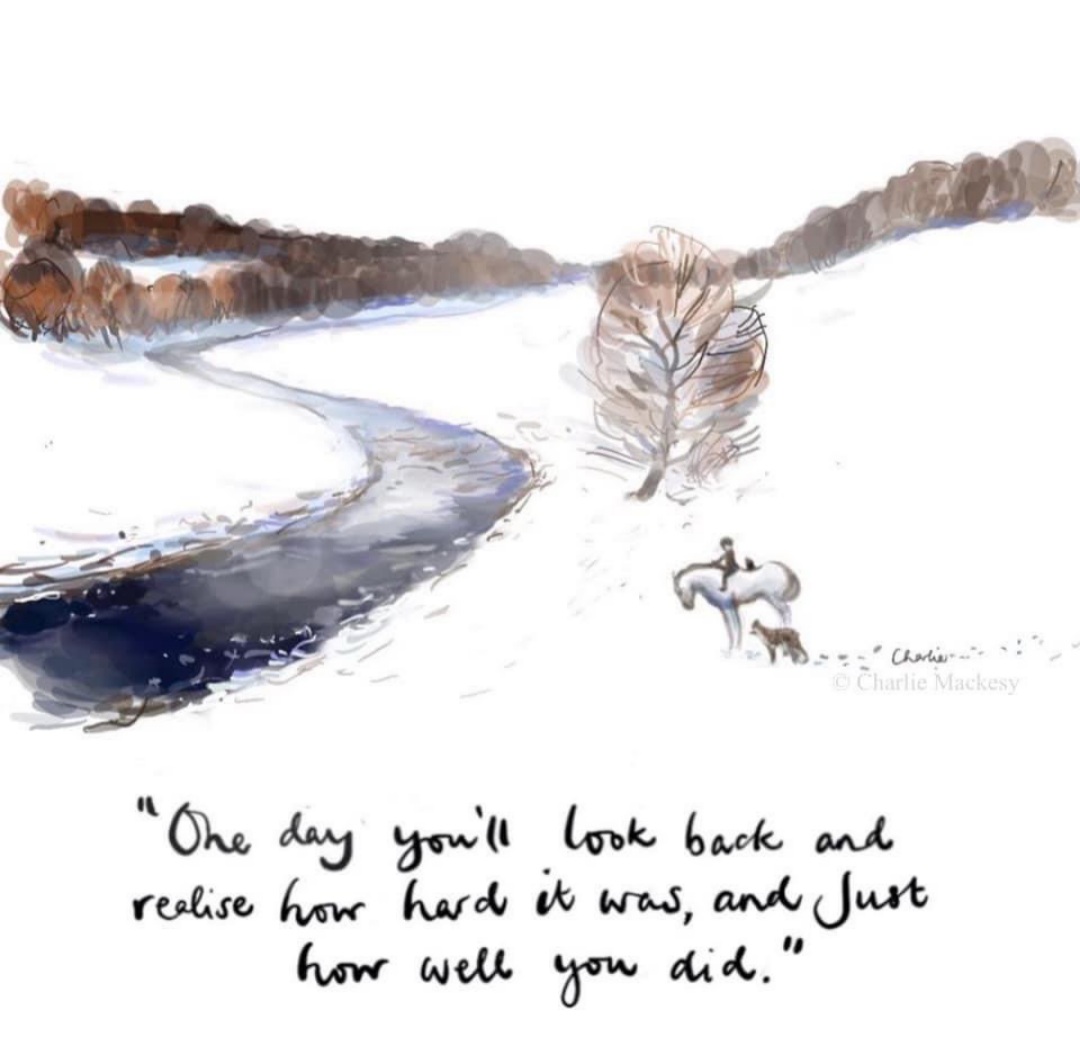 Charlie
© Charlie Mackesy
"One day you'll look back and
realise how hard it was, and Just
how well you did."